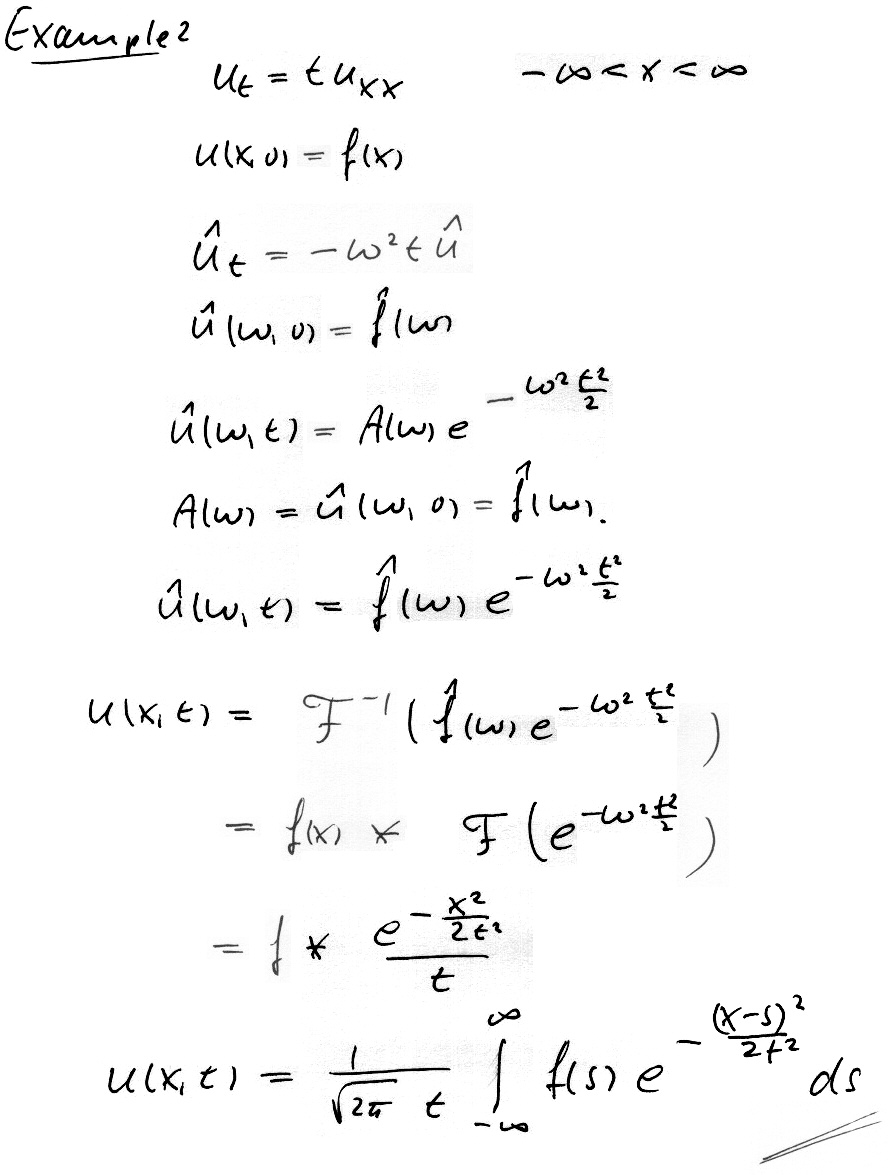 Example 2
u_t = t u_xx    -∞ < x < ∞
u(x, 0) = f(x)
û_t = -ω² t û
û(ω, 0) = f̂(ω)
û(ω, t) = A(ω) e^{-ω² t²/2}
A(ω) = û(ω, 0) = f̂(ω).
û(ω, t) = f̂(ω) e^{-ω² t²/2}
u(x, t) = ℱ⁻¹ ( f̂(ω) e^{-ω² t²/2} )
= f(x) * ℱ ( e^{-ω² t²/2} )
= f * e^{-x²/2t²} / t
u(x, t) = 1/(√2π t) ∫_{-∞}^{∞} f(s) e^{-(x-s)²/2t²} ds